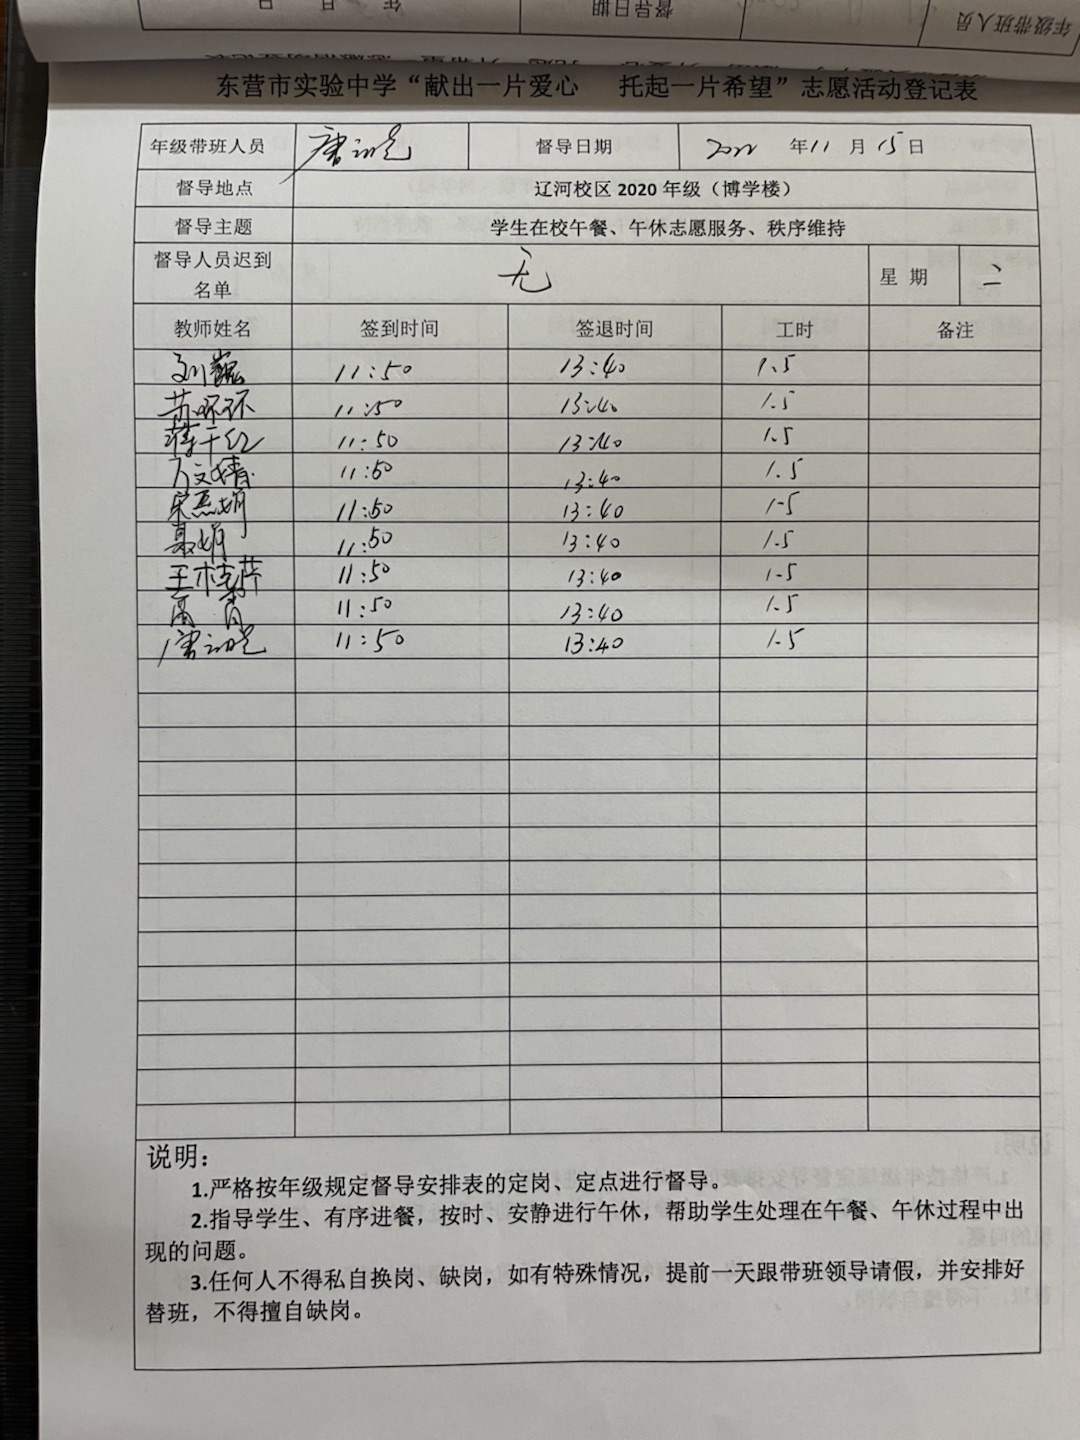 年级带班人员
督导日期
年 月 日
东营市实验中学“献出一片爱心 托起一片希望”志愿活动登记表
年级带班人员 督导日期 2022 年 11 月 15 日
督导地点 辽河校区 2020 年级（博学楼）
督导主题 学生在校午餐、午休志愿服务、秩序维持
督导人员迟到名单 无 星 期 二
教师姓名 签到时间 签退时间 工时 备注
刘巍 11:50 13:40 1.5
苏怀环 11:50 13:40 1.5
蒋于红 11:50 13:40 1.5
万文婧 11:50 13:40 1.5
宋燕娟 11:50 13:40 1.5
聂娟 11:50 13:40 1.5
王桂萍 11:50 13:40 1.5
11:50 13:40 1.5
11:50 13:40 1.5
说明：
1.严格按年级规定督导安排表的定岗、定点进行督导。
2.指导学生、有序进餐，按时、安静进行午休，帮助学生处理在午餐、午休过程中出
现的问题。
3.任何人不得私自换岗、缺岗，如有特殊情况，提前一天跟带班领导请假，并安排好
替班，不得擅自缺岗。